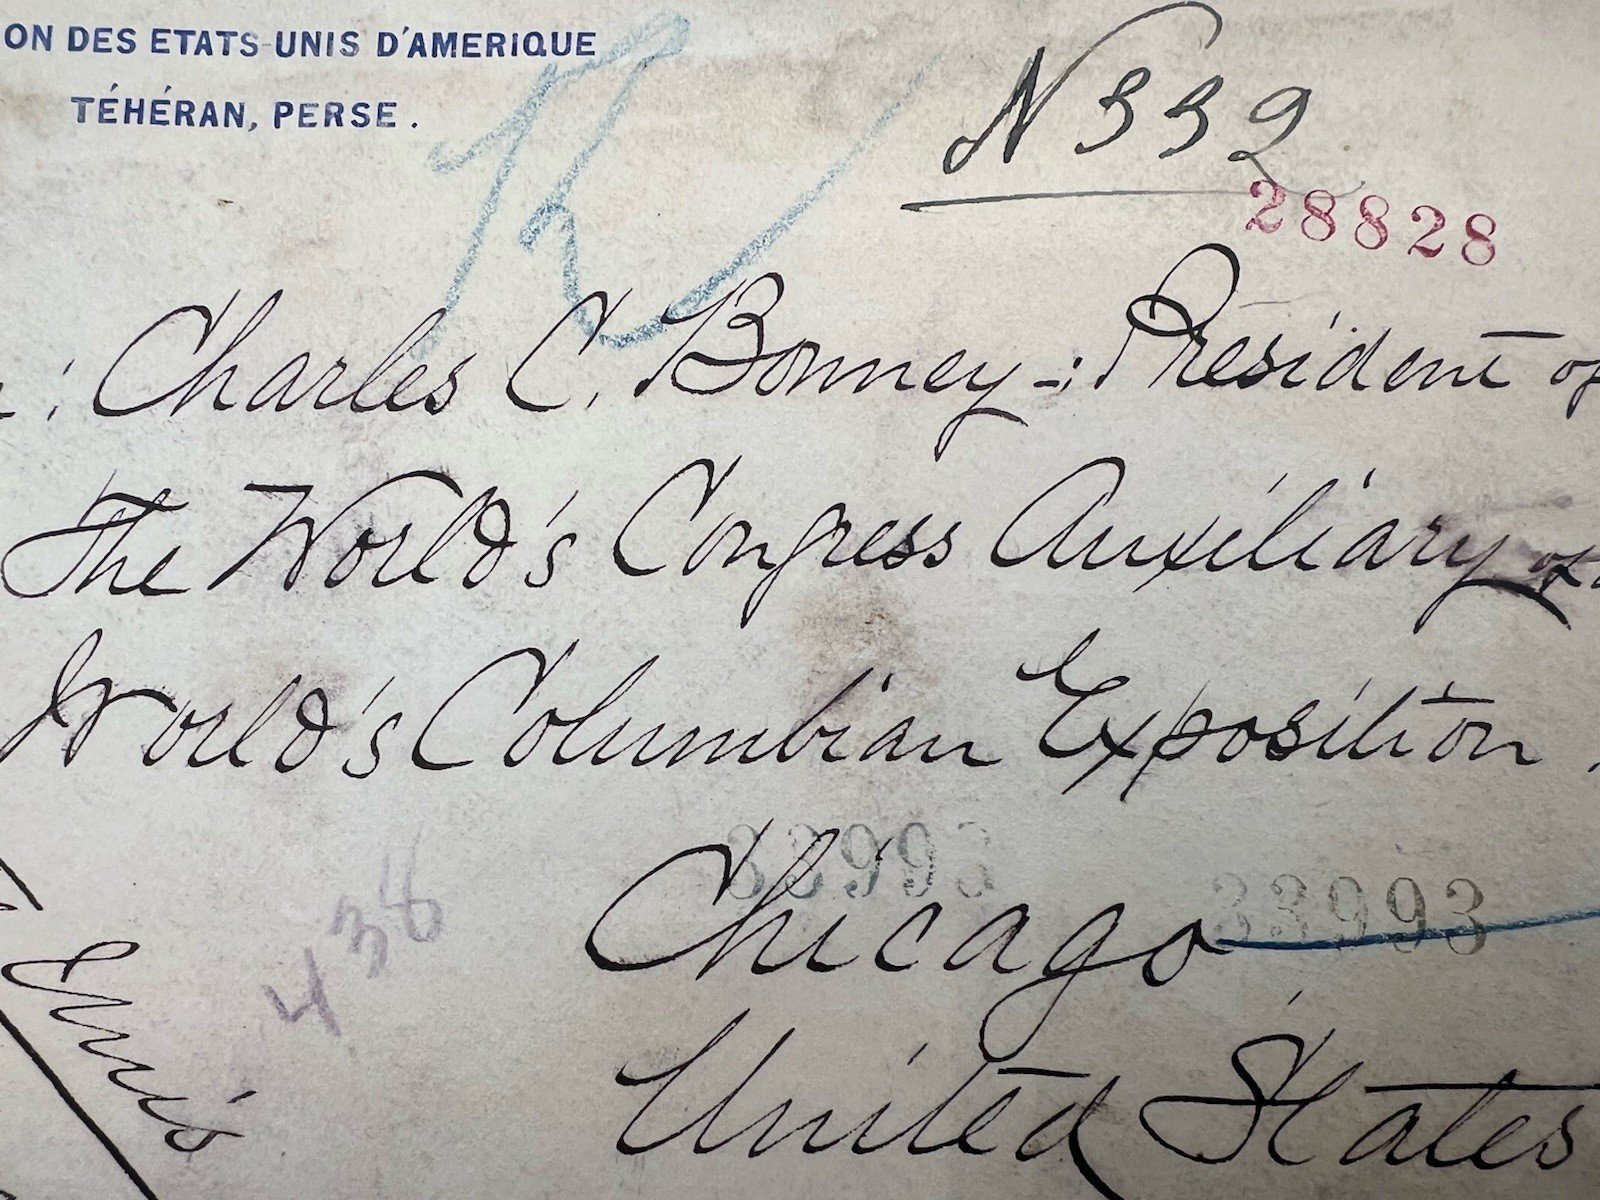 ON DES ETATS-UNIS D'AMERIQUE
TÉHÉRAN, PERSE.
N 332
28828
: Charles C. Bonney -: President of
The World's Congress Auxiliary of
World's Columbian Exposition.
33993
33993
Chicago
436
United States